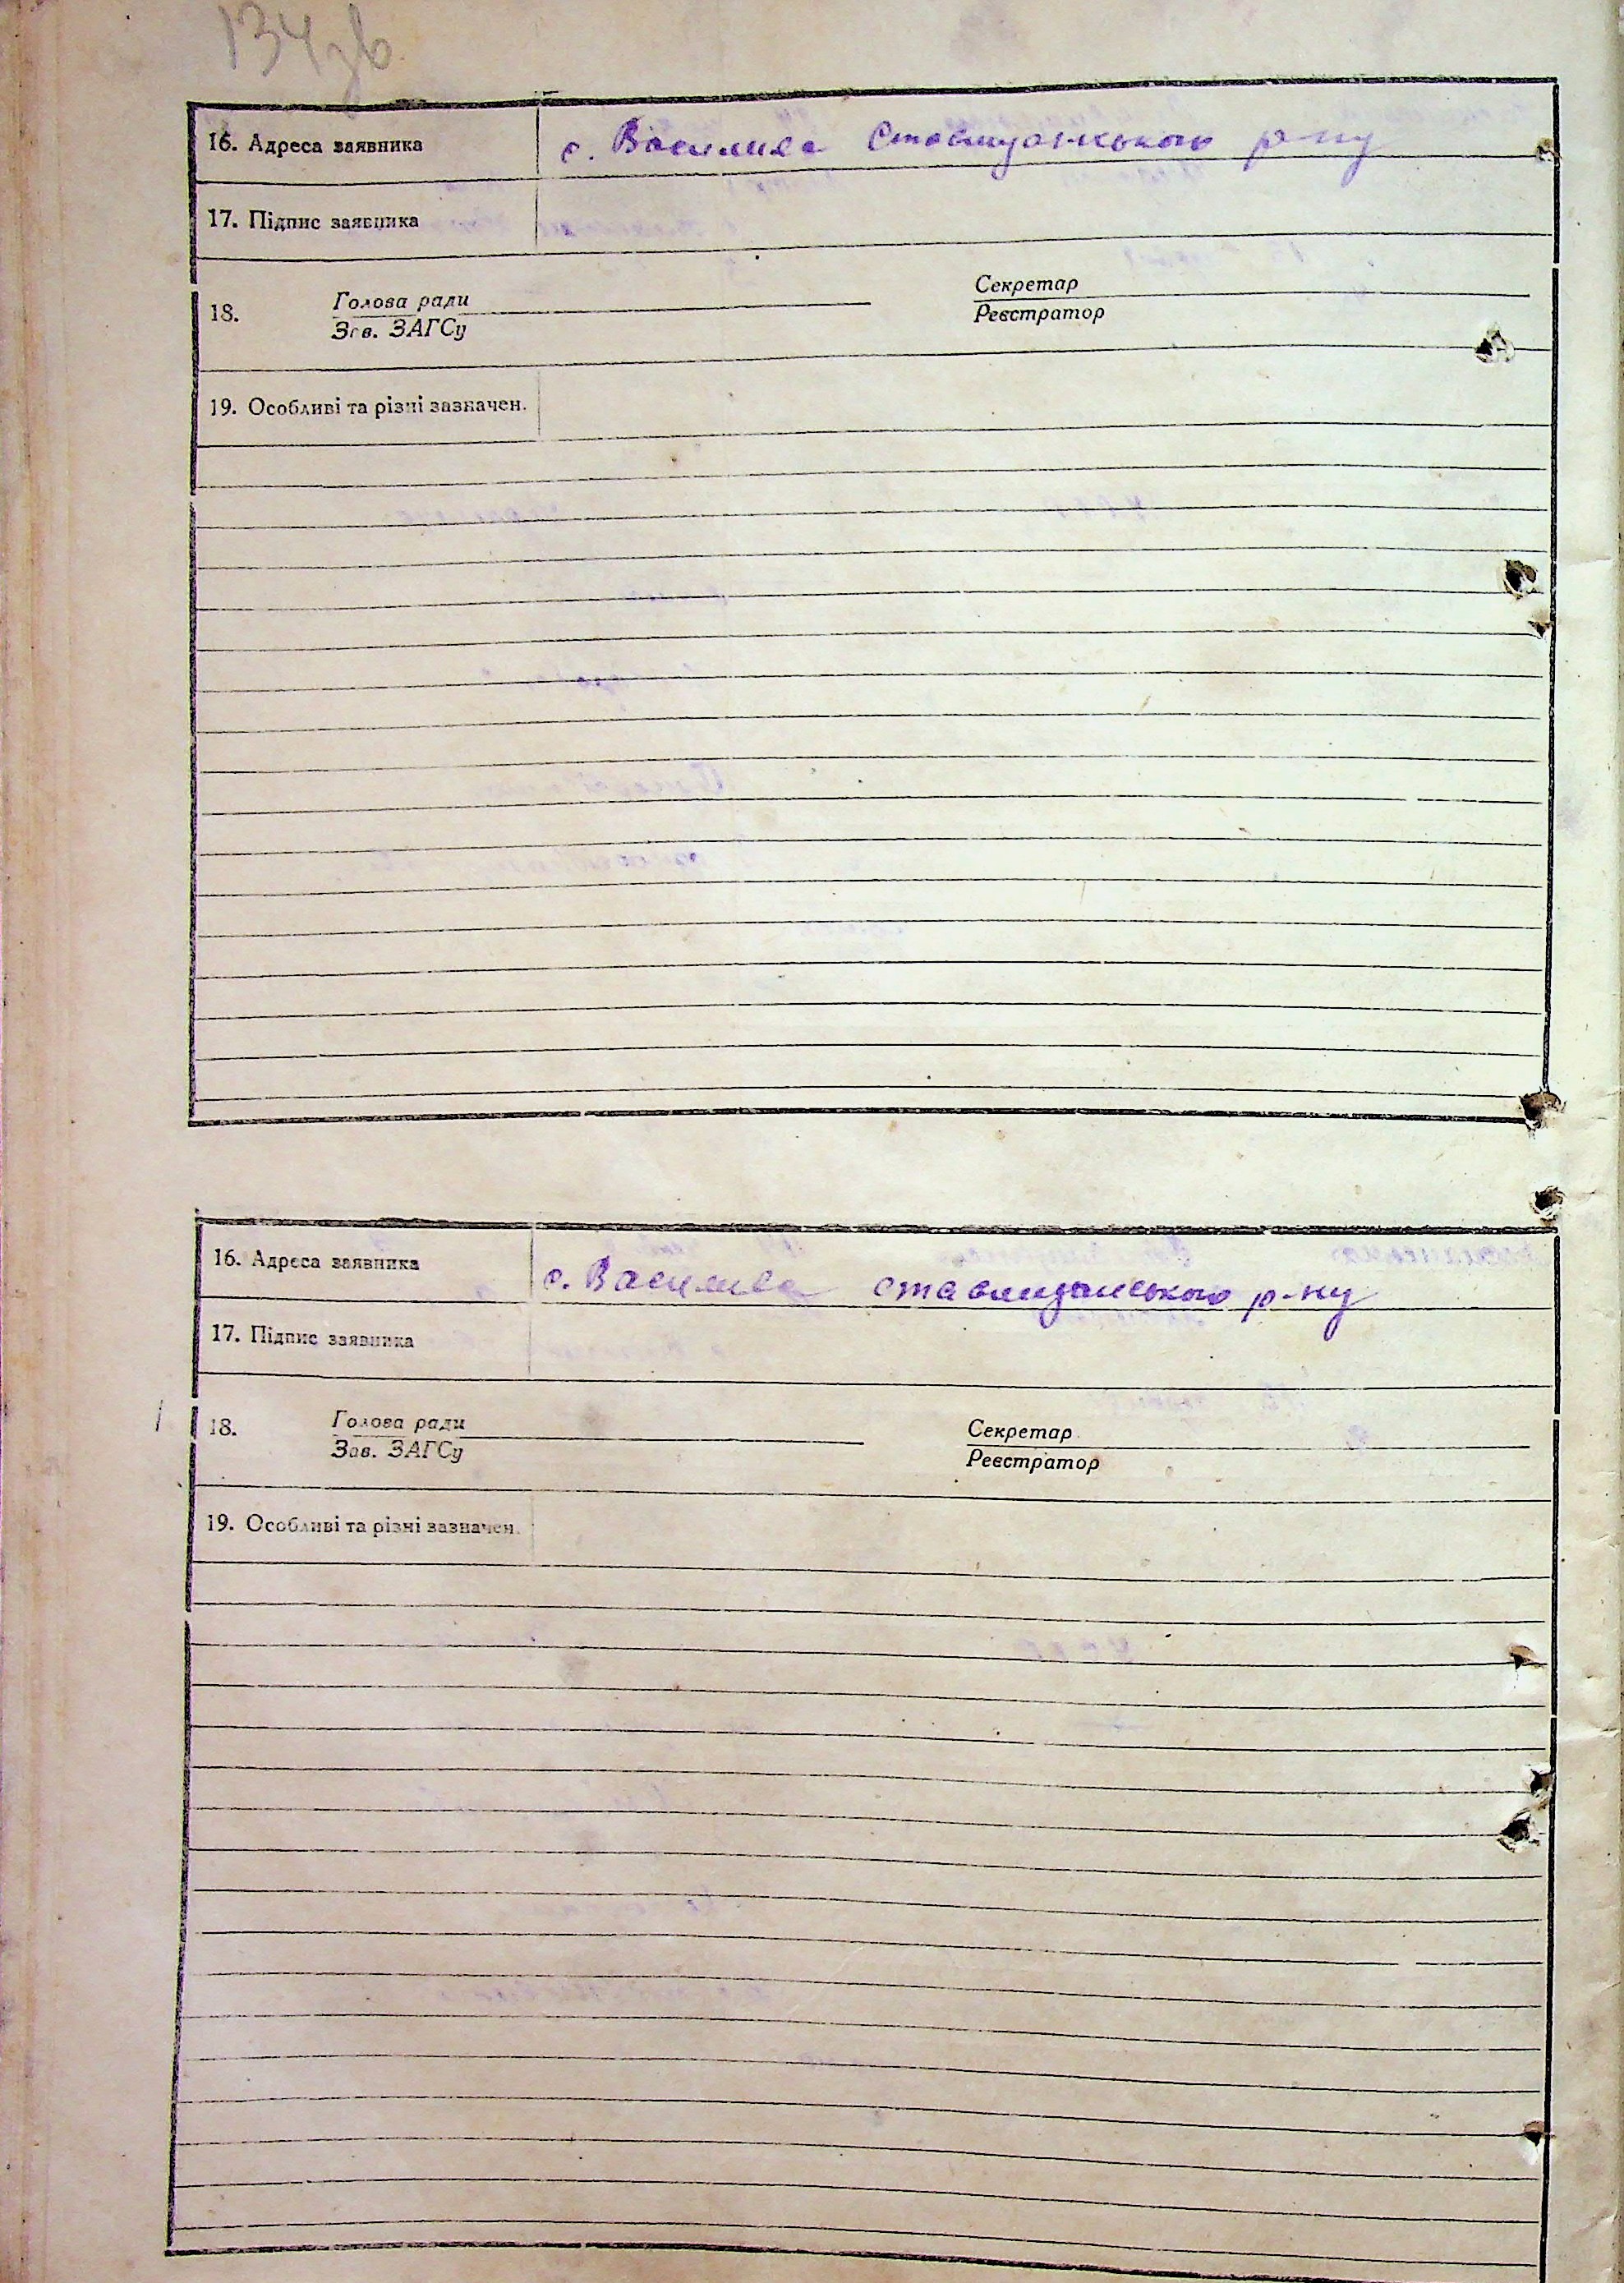 134зв
16. Адреса заявника с. Василива Ставищанського р-ну
17. Підпис заявника
18. Голова ради Секретар
Зав. ЗАГСу Реєстратор
19. Особливі та різні зазначен.
16. Адреса заявника с. Василива Ставищанського р-ну
17. Підпис заявника
18. Голова ради Секретар
Зав. ЗАГСу Реєстратор
19. Особливі та різні зазначен.